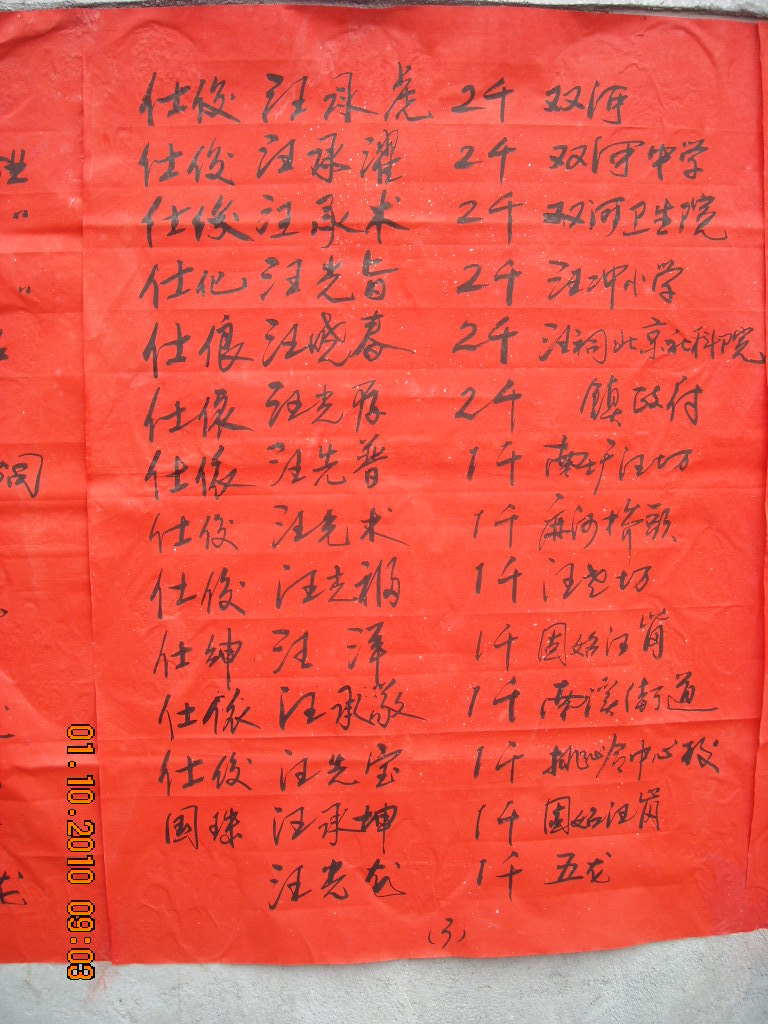 仕俊 汪承虎 2千 双河
仕俊 汪承濯 2千 双河中学
仕俊 汪承术 2千 双河卫生院
仕化 汪先旨 2千 汪冲小学
仕俍 汪晓春 2千 汪祠北京社科院
仕儇 汪先厚 2千 镇政府
仕依 汪先普 1千 南圩汪坊
仕俊 汪先术 1千 麻河桥头
仕俊 汪先福 1千 汪老坊
仕绅 汪洋 1千 固始汪岗
仕依 汪承敬 1千 南溪街道
仕俊 汪先宝 1千 桃岭中心校
国珠 汪承坤 1千 固始汪岗
汪先龙 1千 五龙
(3)
01.10.2010 09:03